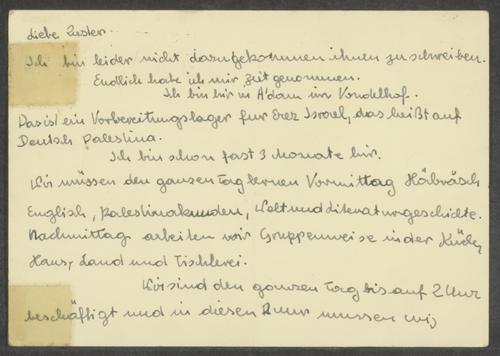 Liebe Zuster.
Ich bin leider nicht dazugekommen ihnen zu schreiben.
Endlich habe ich mir Zeit genommen.
Ich bin hir in A'dam im Vondelhof.
Das ist ein Vorbereitungslager für Erez Israel, das heißt auf
Deutsch Palestina.
Ich bin schon fast 3 Monate hir.
Wir müssen den ganzen Tag lernen Vormittag Häbräsch
English, Palestinakunden, Welt und Literaturgeschichte.
Nachmittag arbeiten wir Gruppenweise in der Küche,
Haus, Land und Tischlerei.
Wir sind den ganzen Tag bis auf 2 Uhr
beschäftigt und in diesen 2 mussen wir